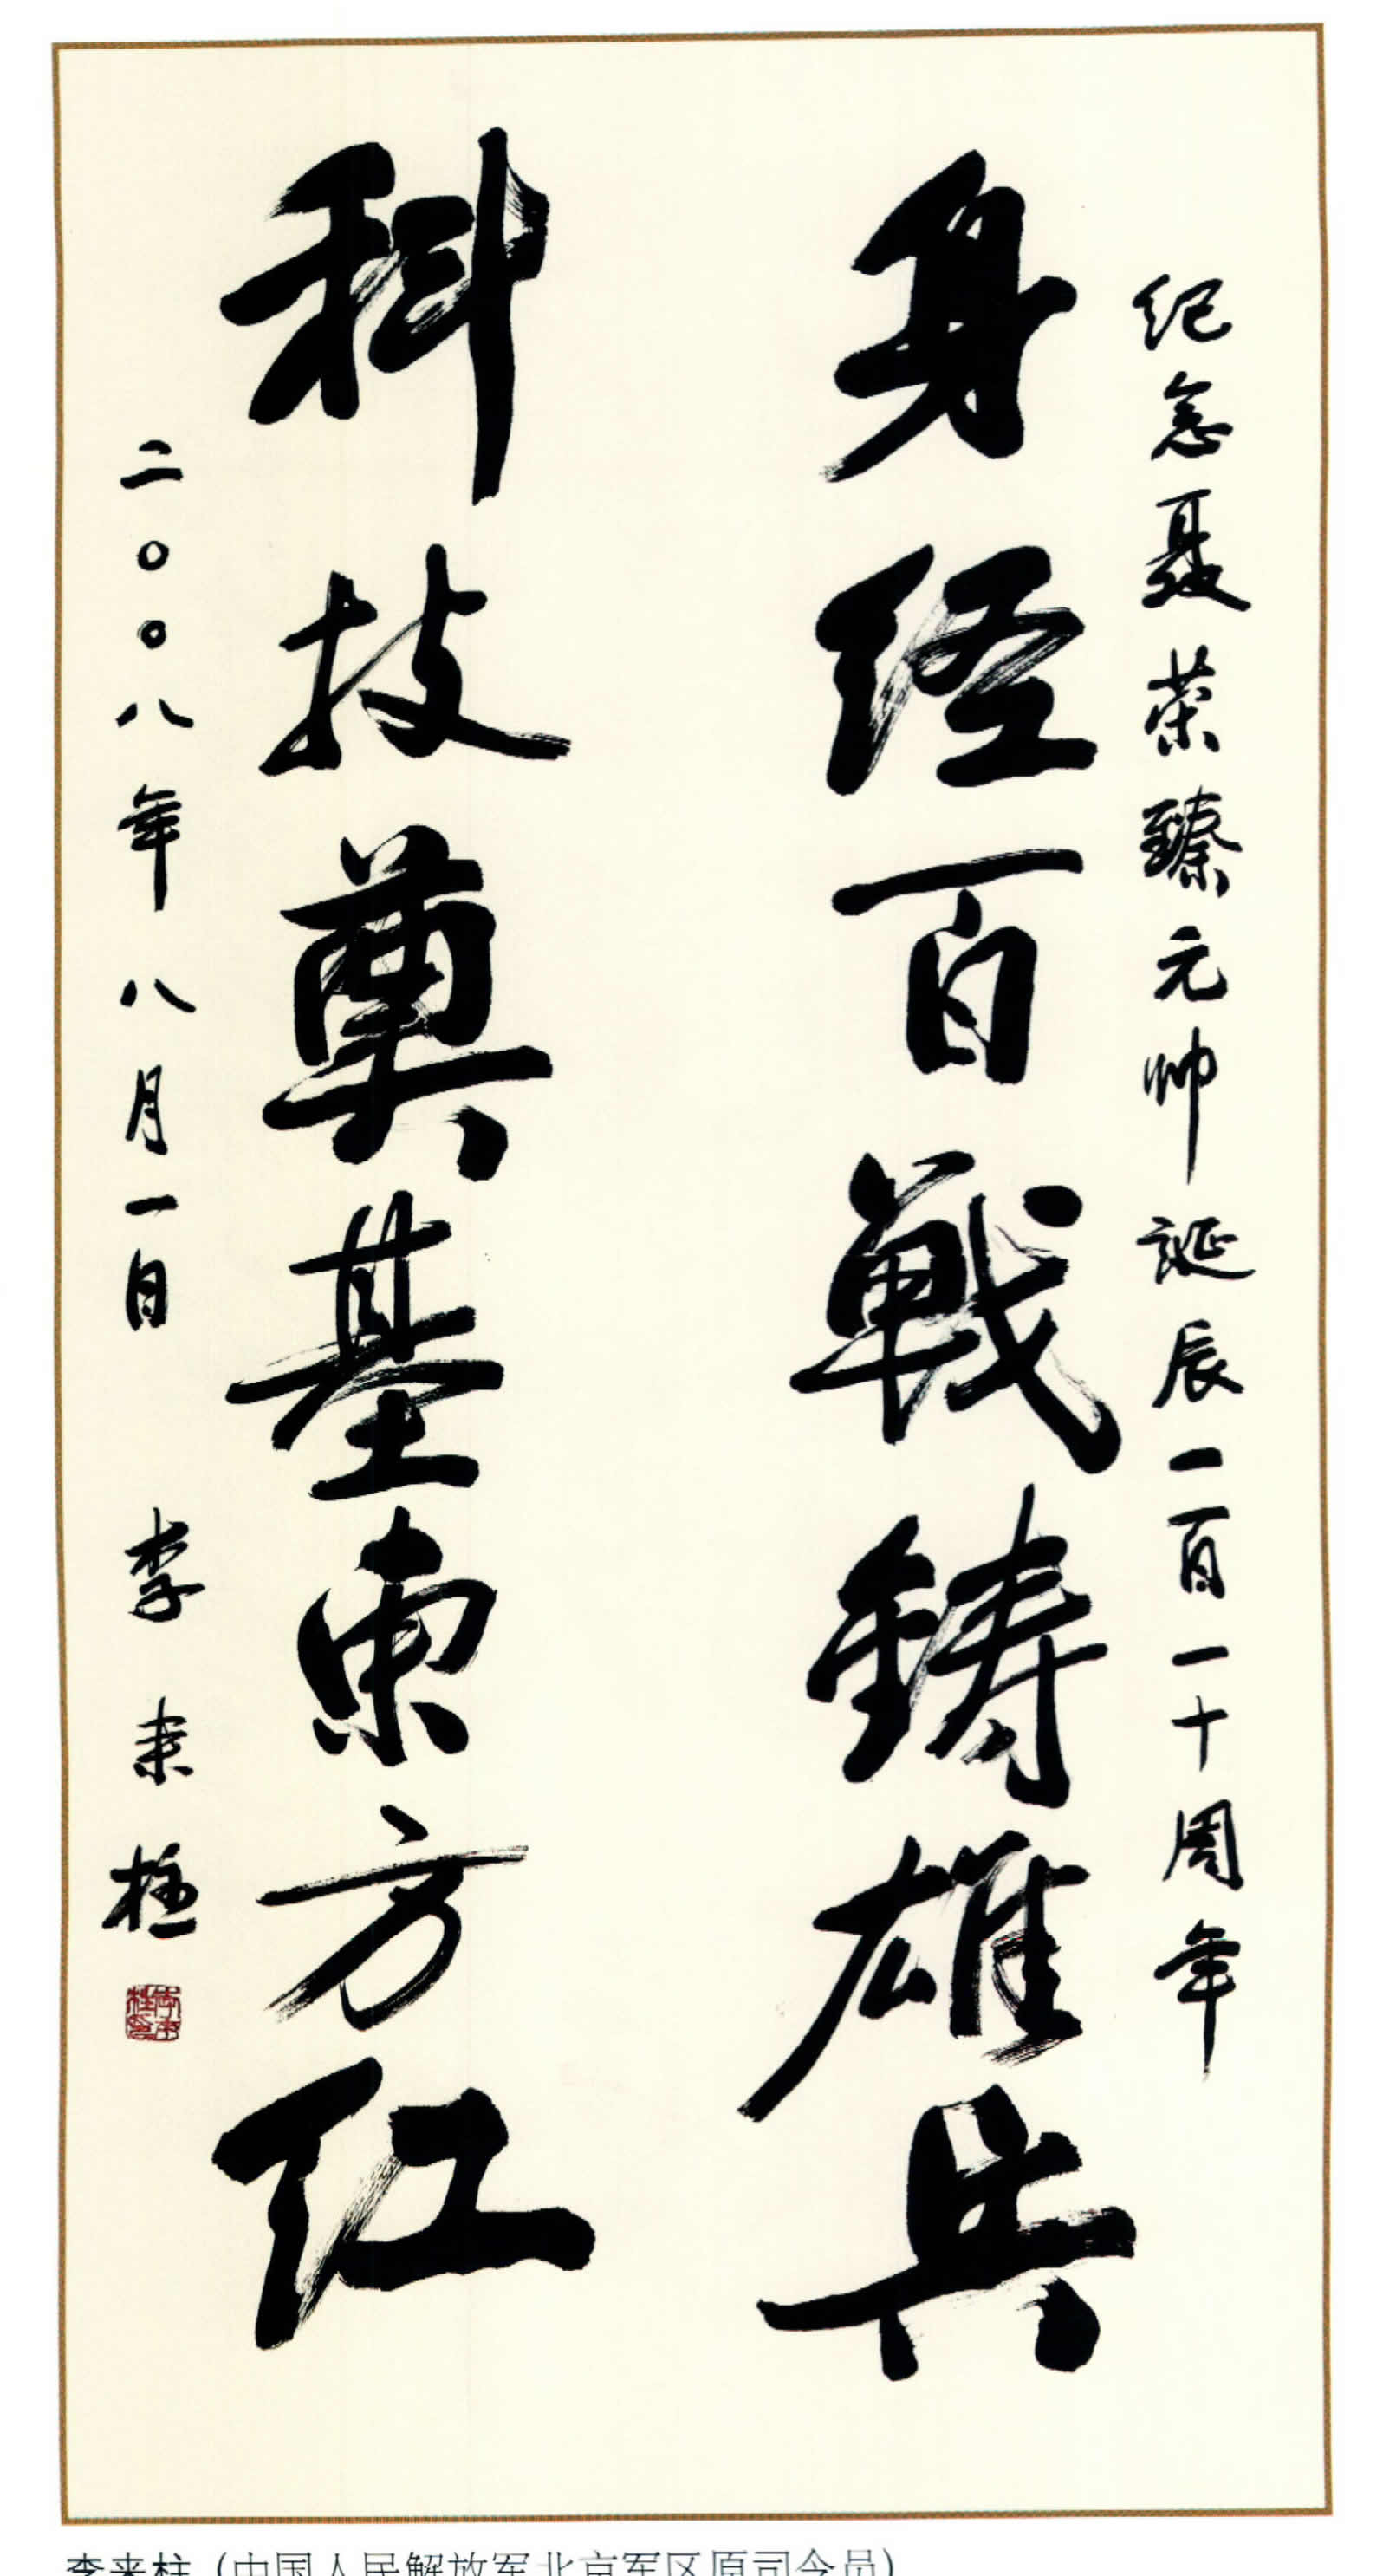 纪念聂荣臻元帅誕辰一百一十周年
身经百戦鋳雄兵
科技奠基东方红
二〇〇八年八月一日 李来柱
李来柱印
李来柱（中国人民解放军北京军区原司令员）